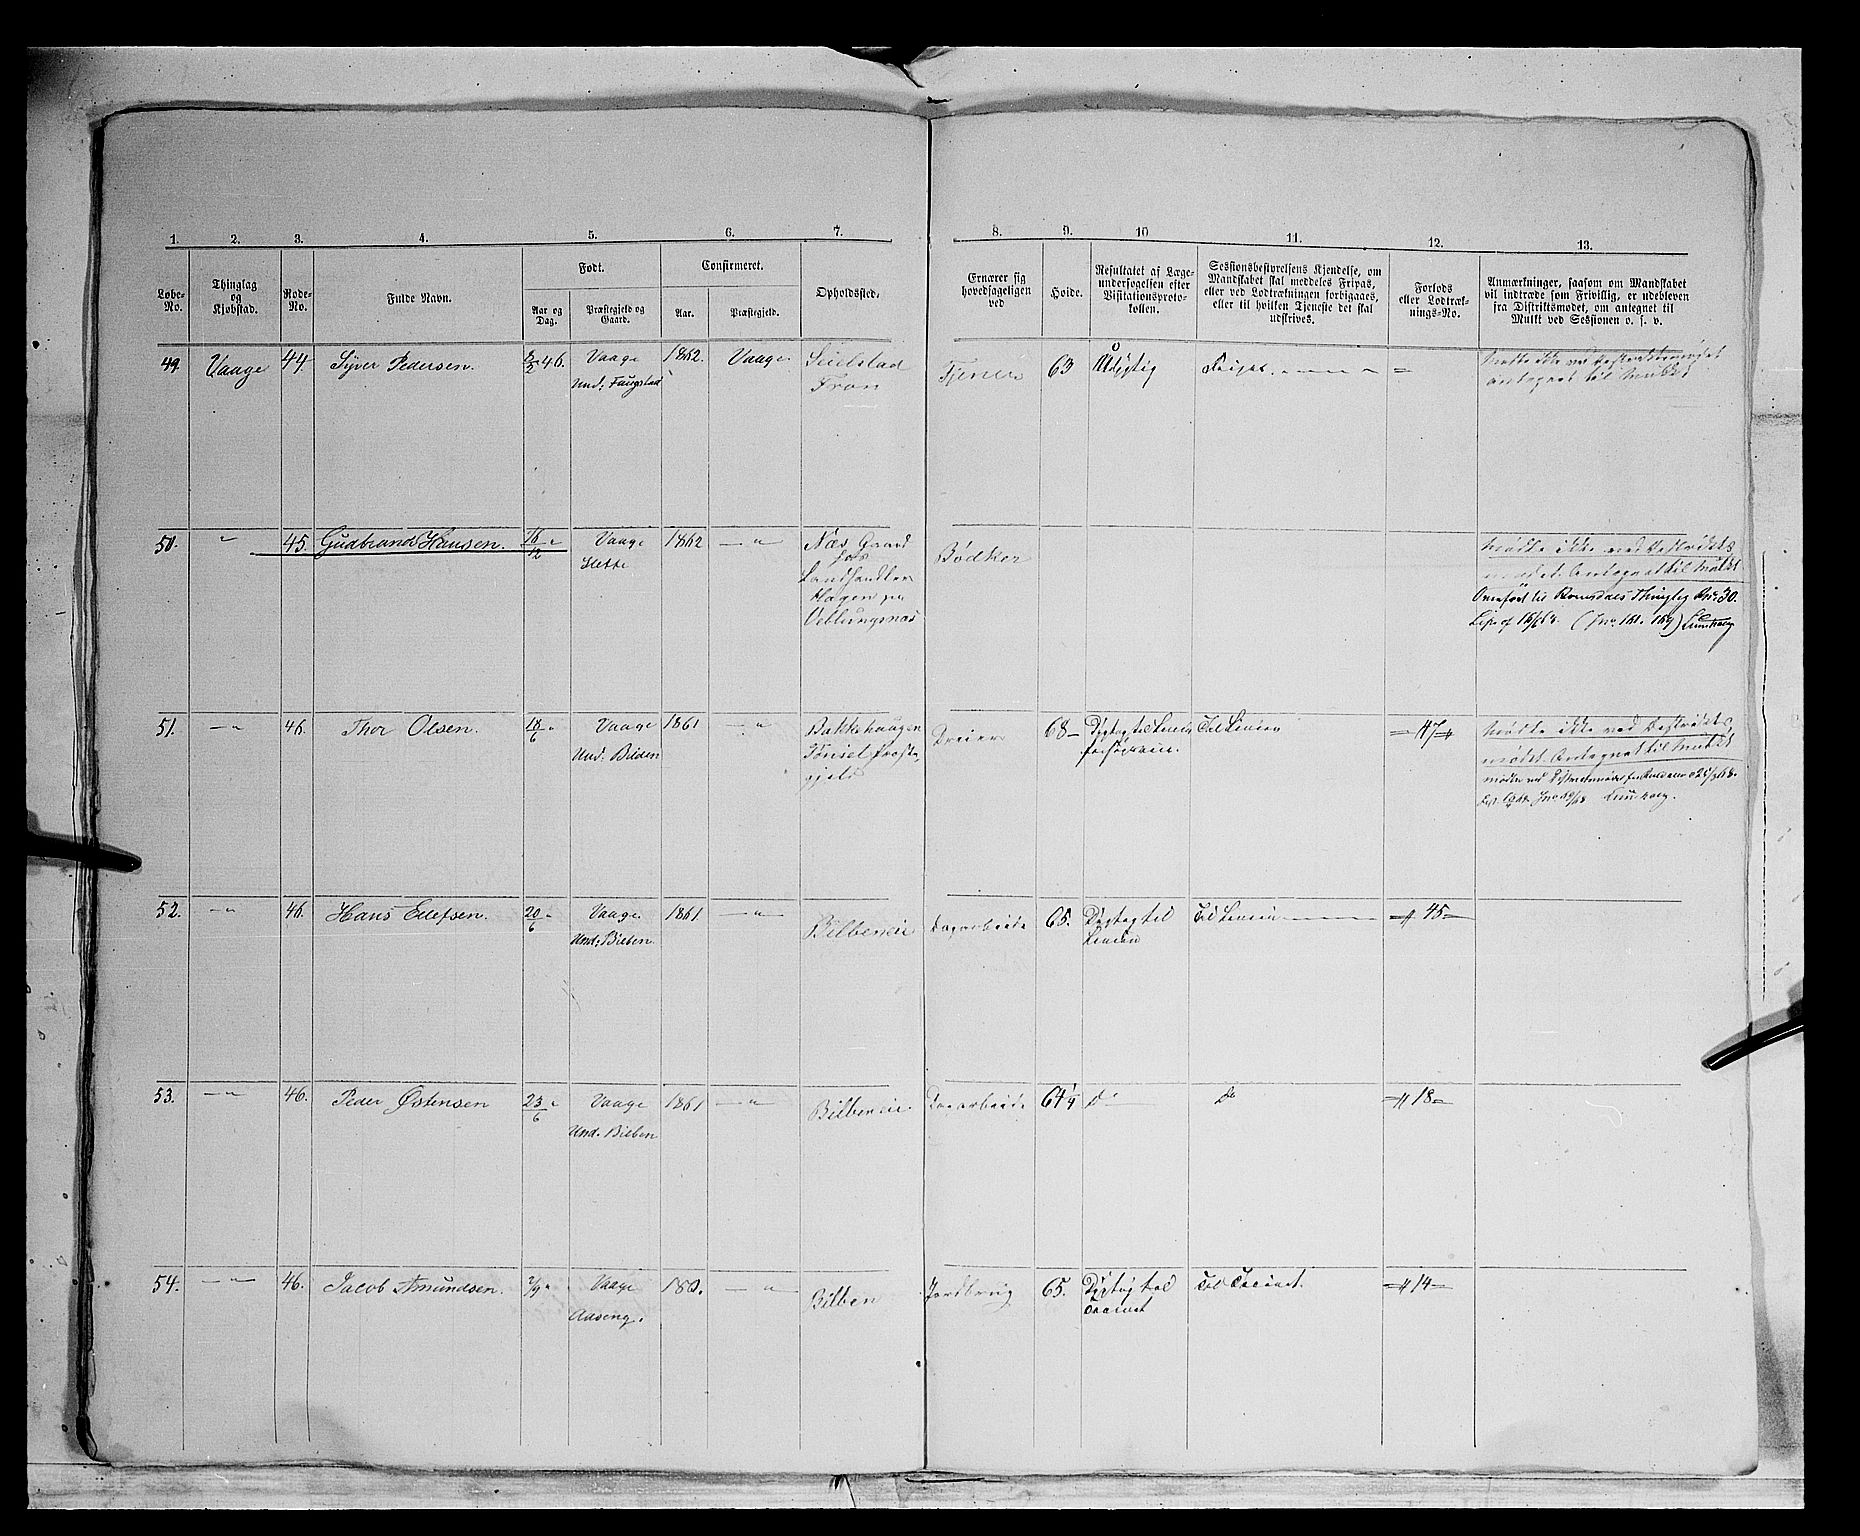 1. 2. 3. 4. 5. 6. 7. 8. 9. 10 11. 12. 13.
Løbe-No.
Thinglag og Kjøbstad.
Rode-No.
Fulde Navn.
Født.
Aar og Dag.
Præstegjeld og Gaard.
Confirmeret.
Aar.
Præstegjeld.
Opholdssted.
Ernærer sig hovedsageligen ved
Høide.
Resultatet af Læge-
undersøgelsen efter
Visitationsproto-
kollen.
Sessionsbestyrelsens Kjendelse, om
Mandskabet skal meddeles Fripas,
eller ved Lodtrækningen forbigaaes,
eller til hvilken Tjeneste det skal
udskrives.
Forlods
eller Lodtræk-
nings-No.
Anmærkninger, saasom om Mandskabet
vil indtræde som Frivillig, er udebleven
fra Distriktsmødet, om antegnet til
Mulkt ved Sessionen o. s. v.
49. Vaage 44. Syver Pedersen. 46. Vaage 1862. Vaage Seielstad Tjener 63 Udygtig Fripas
Und. Faugstad Fron
antegnet til Mulkt
50. " 45. Gudbrand Hansen. 16/12 " Vaage 1862 — " Næs Gaard Bødker Mødte ikke ved Distrikts
hos mødet. Antegnet til Mulkt
Landhandler Overført til Romsdals Thinglag No. 30.
Hagen paa
Veblungsnæs
51. — " 46. Thor Olsen. 18/6 " Vaage 1861 — " Bakkehaugen Dreier 68 — Dygtig til Linien Til Linien 47 Mødte ikke ved Distrikts
Und. Bilden Tønset Præste- mødet. Antegnet til Mulkt
gjeld
52. — " 46. Hans Ellefsen. 20/6 " Vaage 1861 — " Bilbeneie Dagarbeide 65. Dygtig til Til Linien 45
Und: Bilben. Linien
53. — " 46. Peder Østensen 23/6 " Vaage 1861 — " Bilbeneie Dagarbeide 64 1/4 do do 18
Und. Bilben
54. — " 46. Jacob Amundsen. Vaage 180. — " Bilben Jordbrug 65. Dygtig til Til Trainet 14
Aaseng. Trainet